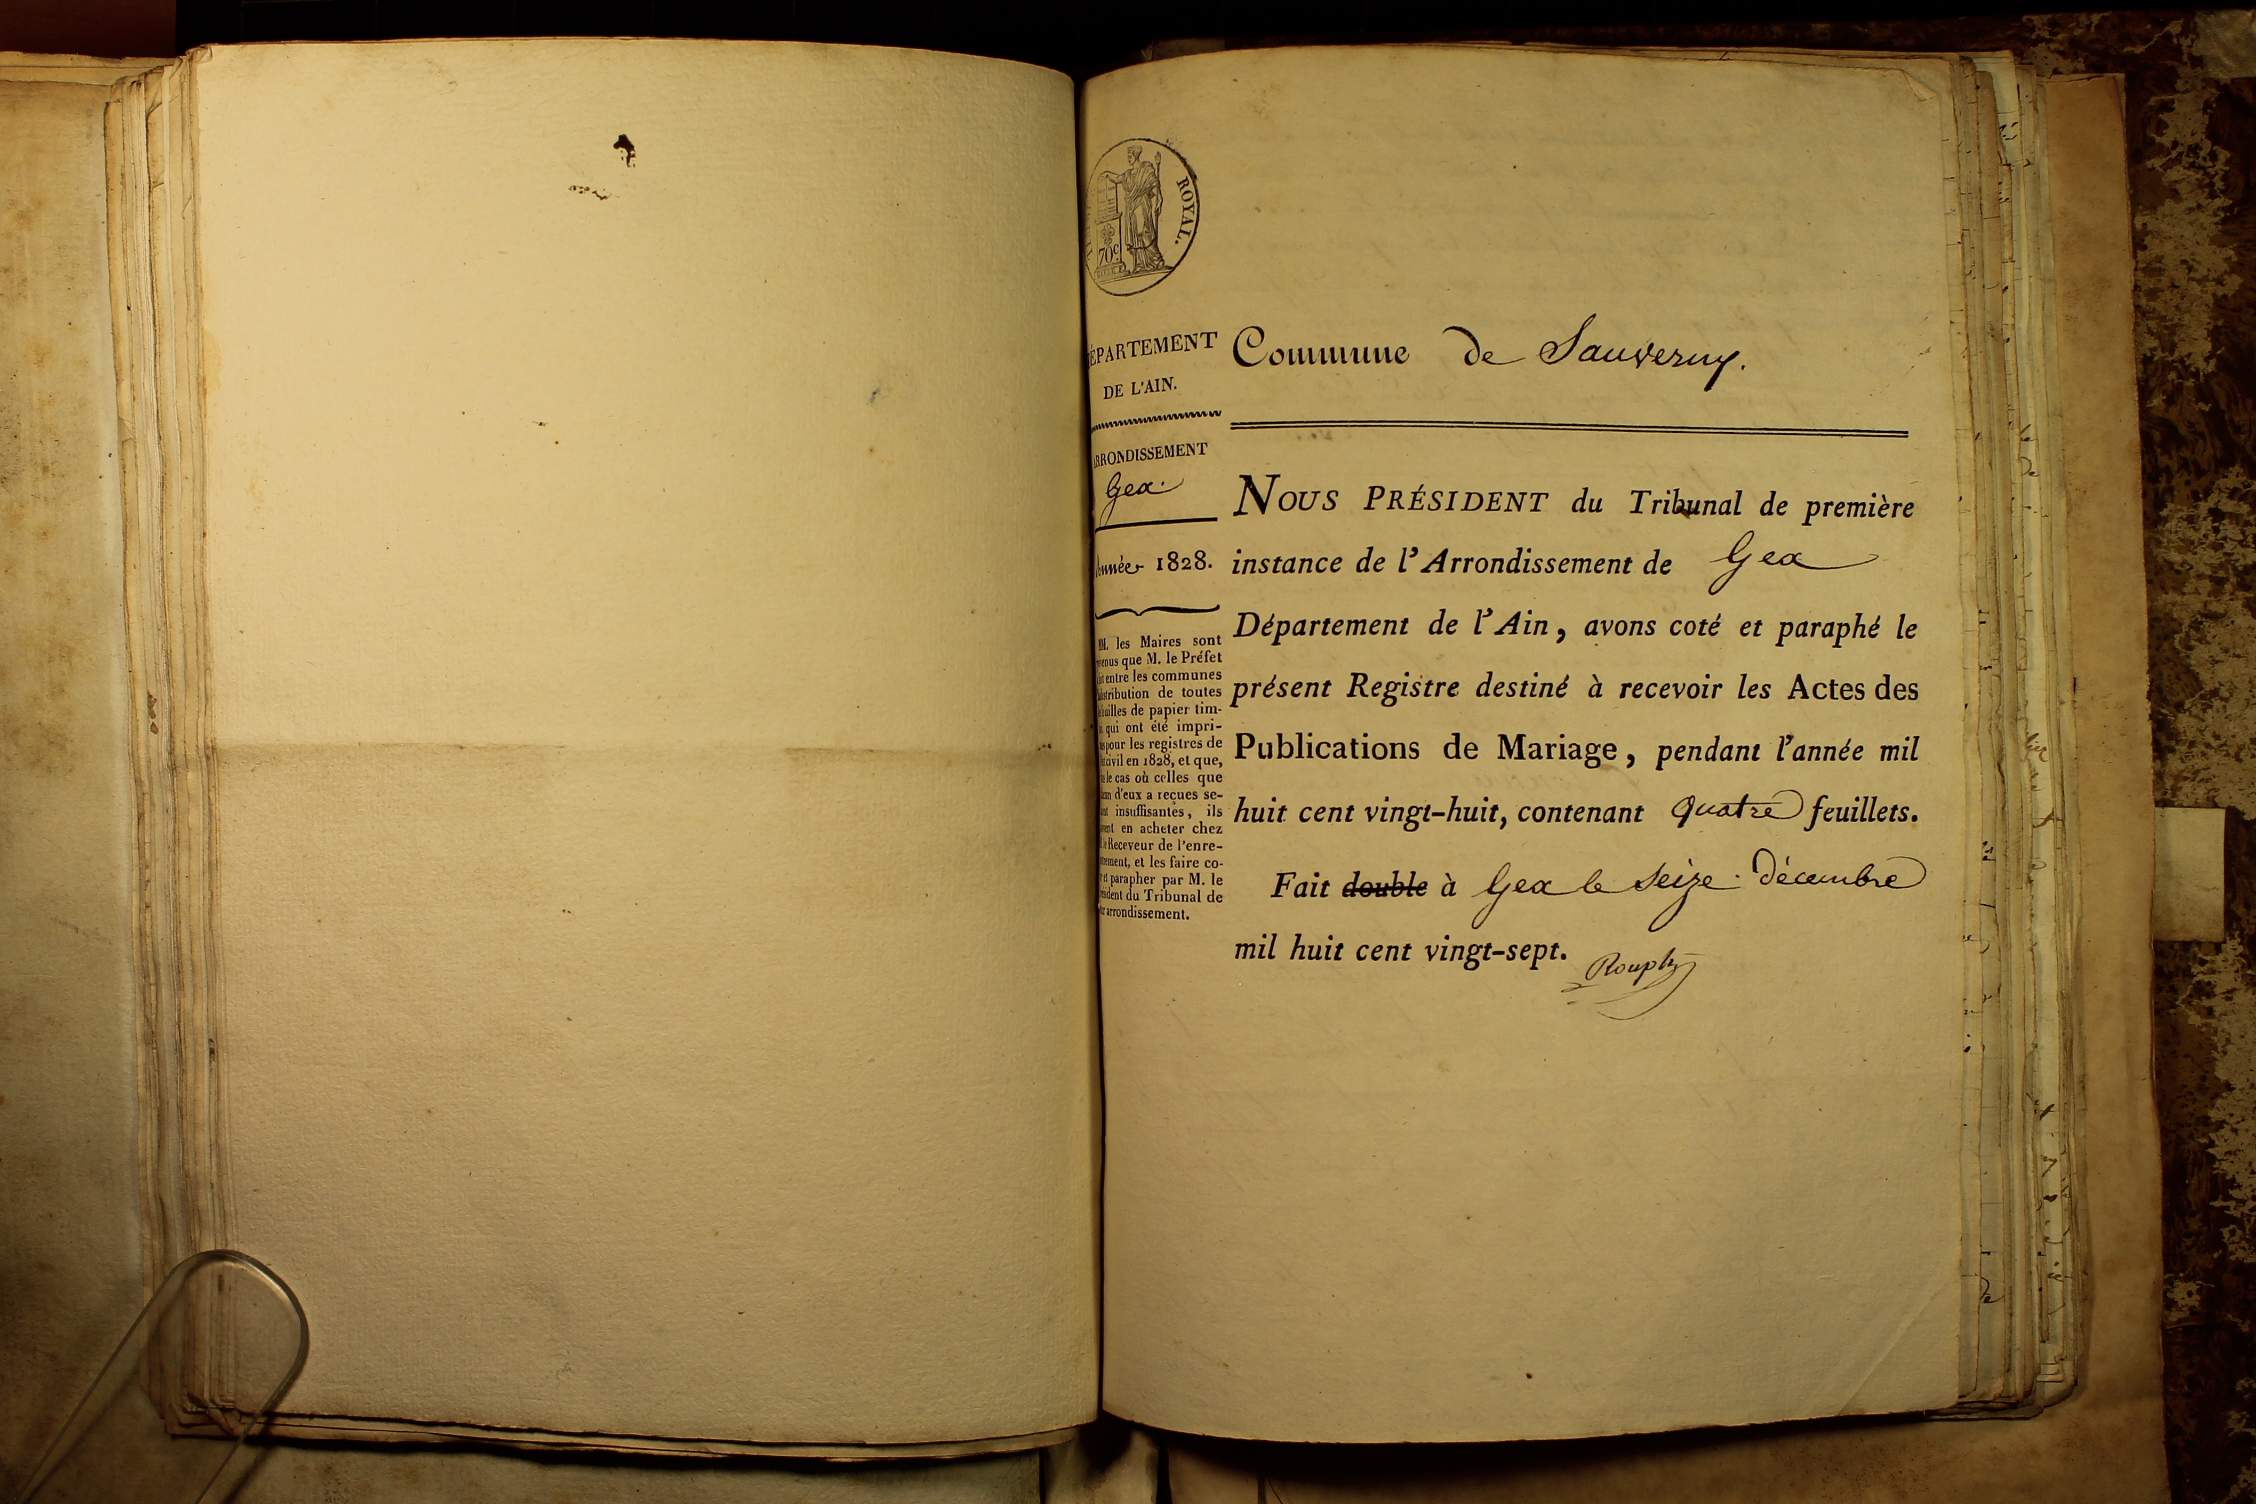 ROYAL.
70c.
ÉPARTEMENT
DE L'AIN.
RRONDISSEMENT
Gex.
Année 1828.
MM. les Maires sont
venus que M. le Préfet
entre les communes
distribution de toutes
feuilles de papier tim-
qui ont été impri-
pour les registres de
civil en 1828, et que,
le cas où celles que
d'eux a reçues se-
insuffisantes, ils
en acheter chez
le Receveur de l'enre-
trement, et les faire co-
et parapher par M. le
résident du Tribunal de
arrondissement.
Commune de Sauverny.
NOUS PRÉSIDENT du Tribunal de première
instance de l'Arrondissement de Gex
Département de l'Ain, avons coté et paraphé le
présent Registre destiné à recevoir les Actes des
Publications de Mariage, pendant l'année mil
huit cent vingt-huit, contenant quatre feuillets.
Fait double à Gex le seize décembre
mil huit cent vingt-sept.